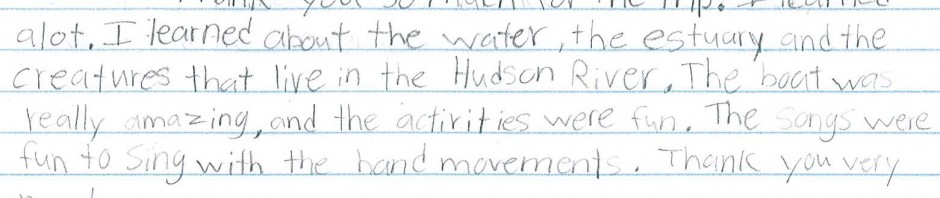 Thank you so much for the trip. I learned
alot. I learned about the water, the estuary and the
creatures that live in the Hudson River. The boat was
really amazing, and the activities were fun. The songs were
fun to sing with the hand movements. Thank you very